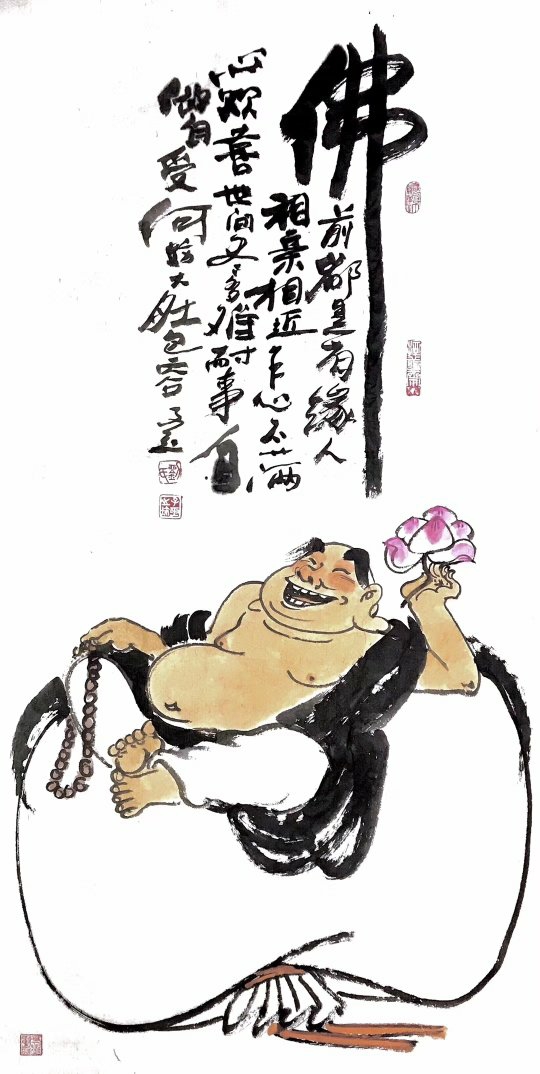 佛
前都是有缘人
相亲相近乍心不满
心欢喜世间又多难耐事自
做自受何妨大肚包容